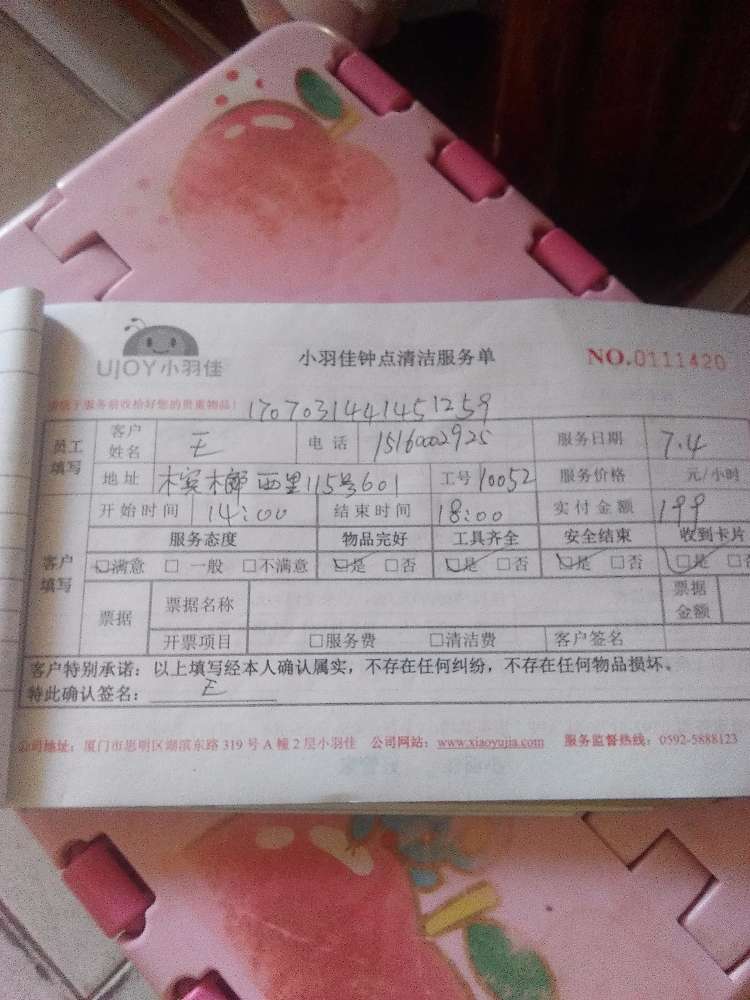 UJOY小羽佳
小羽佳钟点清洁服务单
NO.0111420
请您于服务前收检好您的贵重物品！
1707031441451259
员工填写 客户姓名 王 电话 15160002925 服务日期 7.4
地址 槟榔西里115号601 工号 10052 服务价格 元/小时
开始时间 14:00 结束时间 18:00 实付金额 199
客户填写 服务态度 物品完好 工具齐全 安全结束 收到卡片
☑满意 □ 一般 □不满意 ☑是 □否 ☑是 □否 ☑是 □否 ☑是 □否
票据 票据名称 票据金额
开票项目 □服务费 □清洁费 客户签名
客户特别承诺：以上填写经本人确认属实，不存在任何纠纷，不存在任何物品损坏。
特此确认签名： 王
公司地址：厦门市思明区湖滨东路 319 号 A 幢 2 层小羽佳 公司网站：www.xiaoyujia.com 服务监督热线：0592-5888123